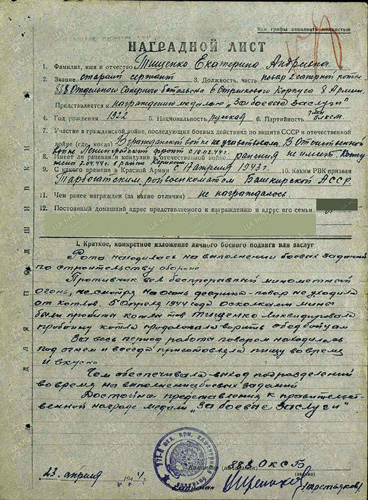 Все графы заполнять полностью
НАГРАДНОЙ ЛИСТ
1. Фамилия, имя и отчество Тищенко Екатерина Андреевна
2. Звание старший сержант 3. Должность, часть повар 2 саперной роты
Отдельного Саперного батальона Стрелкового Корпуса Армии
Представляется к награждению медалью "За боевые заслуги"
4. Год рождения 1922 5. Национальность русская 6. Партийность
7. Участие в гражданской войне, последующих боевых действиях по защите СССР и отечественной
войне (где, когда) В гражданской войне не участвовала. В Отечественной
8. Имеет ли ранения и контузии в отечественной войне ранения не имеет.
9. С какого времени в Красной Армии С Апреля 1943 г. 10. Каким РВК призван
райвоенкоматом Башкирской АССР
11. Чем ранее награжден (за какие отличия) не награждалась
12. Постоянный домашний адрес представляемого к награждению и адрес его семьи
I. Краткое, конкретное изложение личного боевого подвига или заслуг
Рота находилась на выполнении боевых заданий
по строительству обороны
Противник вел беспрерывный минометный
огонь, несмотря на это девушка-повар не уходила
от котлов. 5 Апреля 1944 года осколками мины
были пробиты котлы тов. Тищенко ликвидировала
пробоину котла продолжала варить обед бойцам
За весь период работы поваром находилась
под огнем и всегда приготовляла пищу вовремя
и вкусно
Чем обеспечивала выход подразделений
вовремя на выполнение боевых заданий
Достойна представления к правительст-
венной награде медали "За боевые Заслуги"
23 апреля